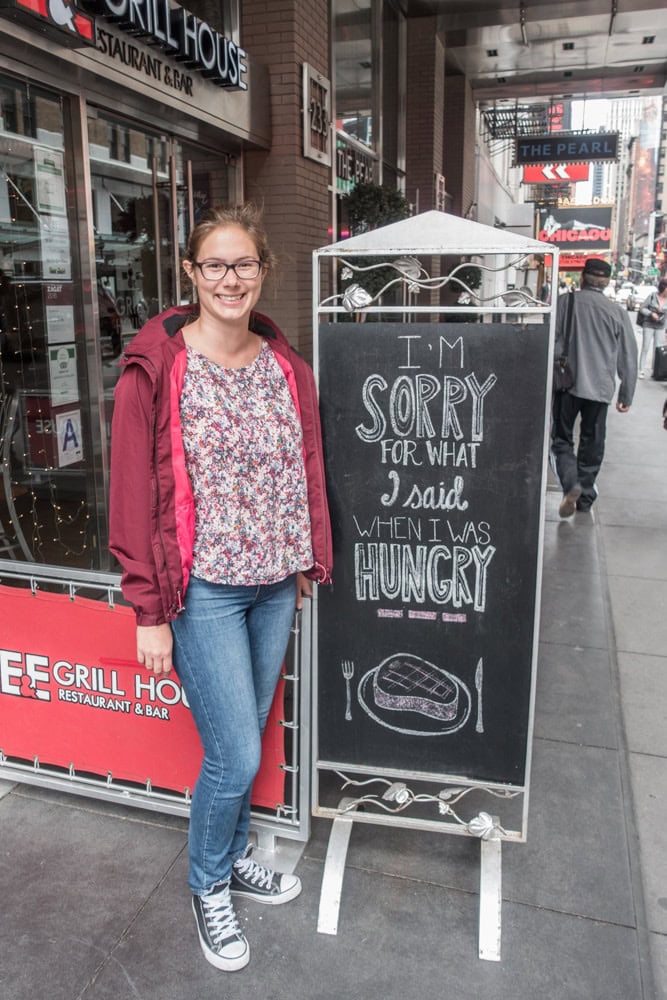 GRILL HOUSE
RESTAURANT & BAR
236
THE PEARL
THE PEARL
CHICAGO
ZAGAT
A
I'M
SORRY
FOR WHAT
I said
WHEN I WAS
HUNGRY
E&E GRILL HOU
RESTAURANT & BAR